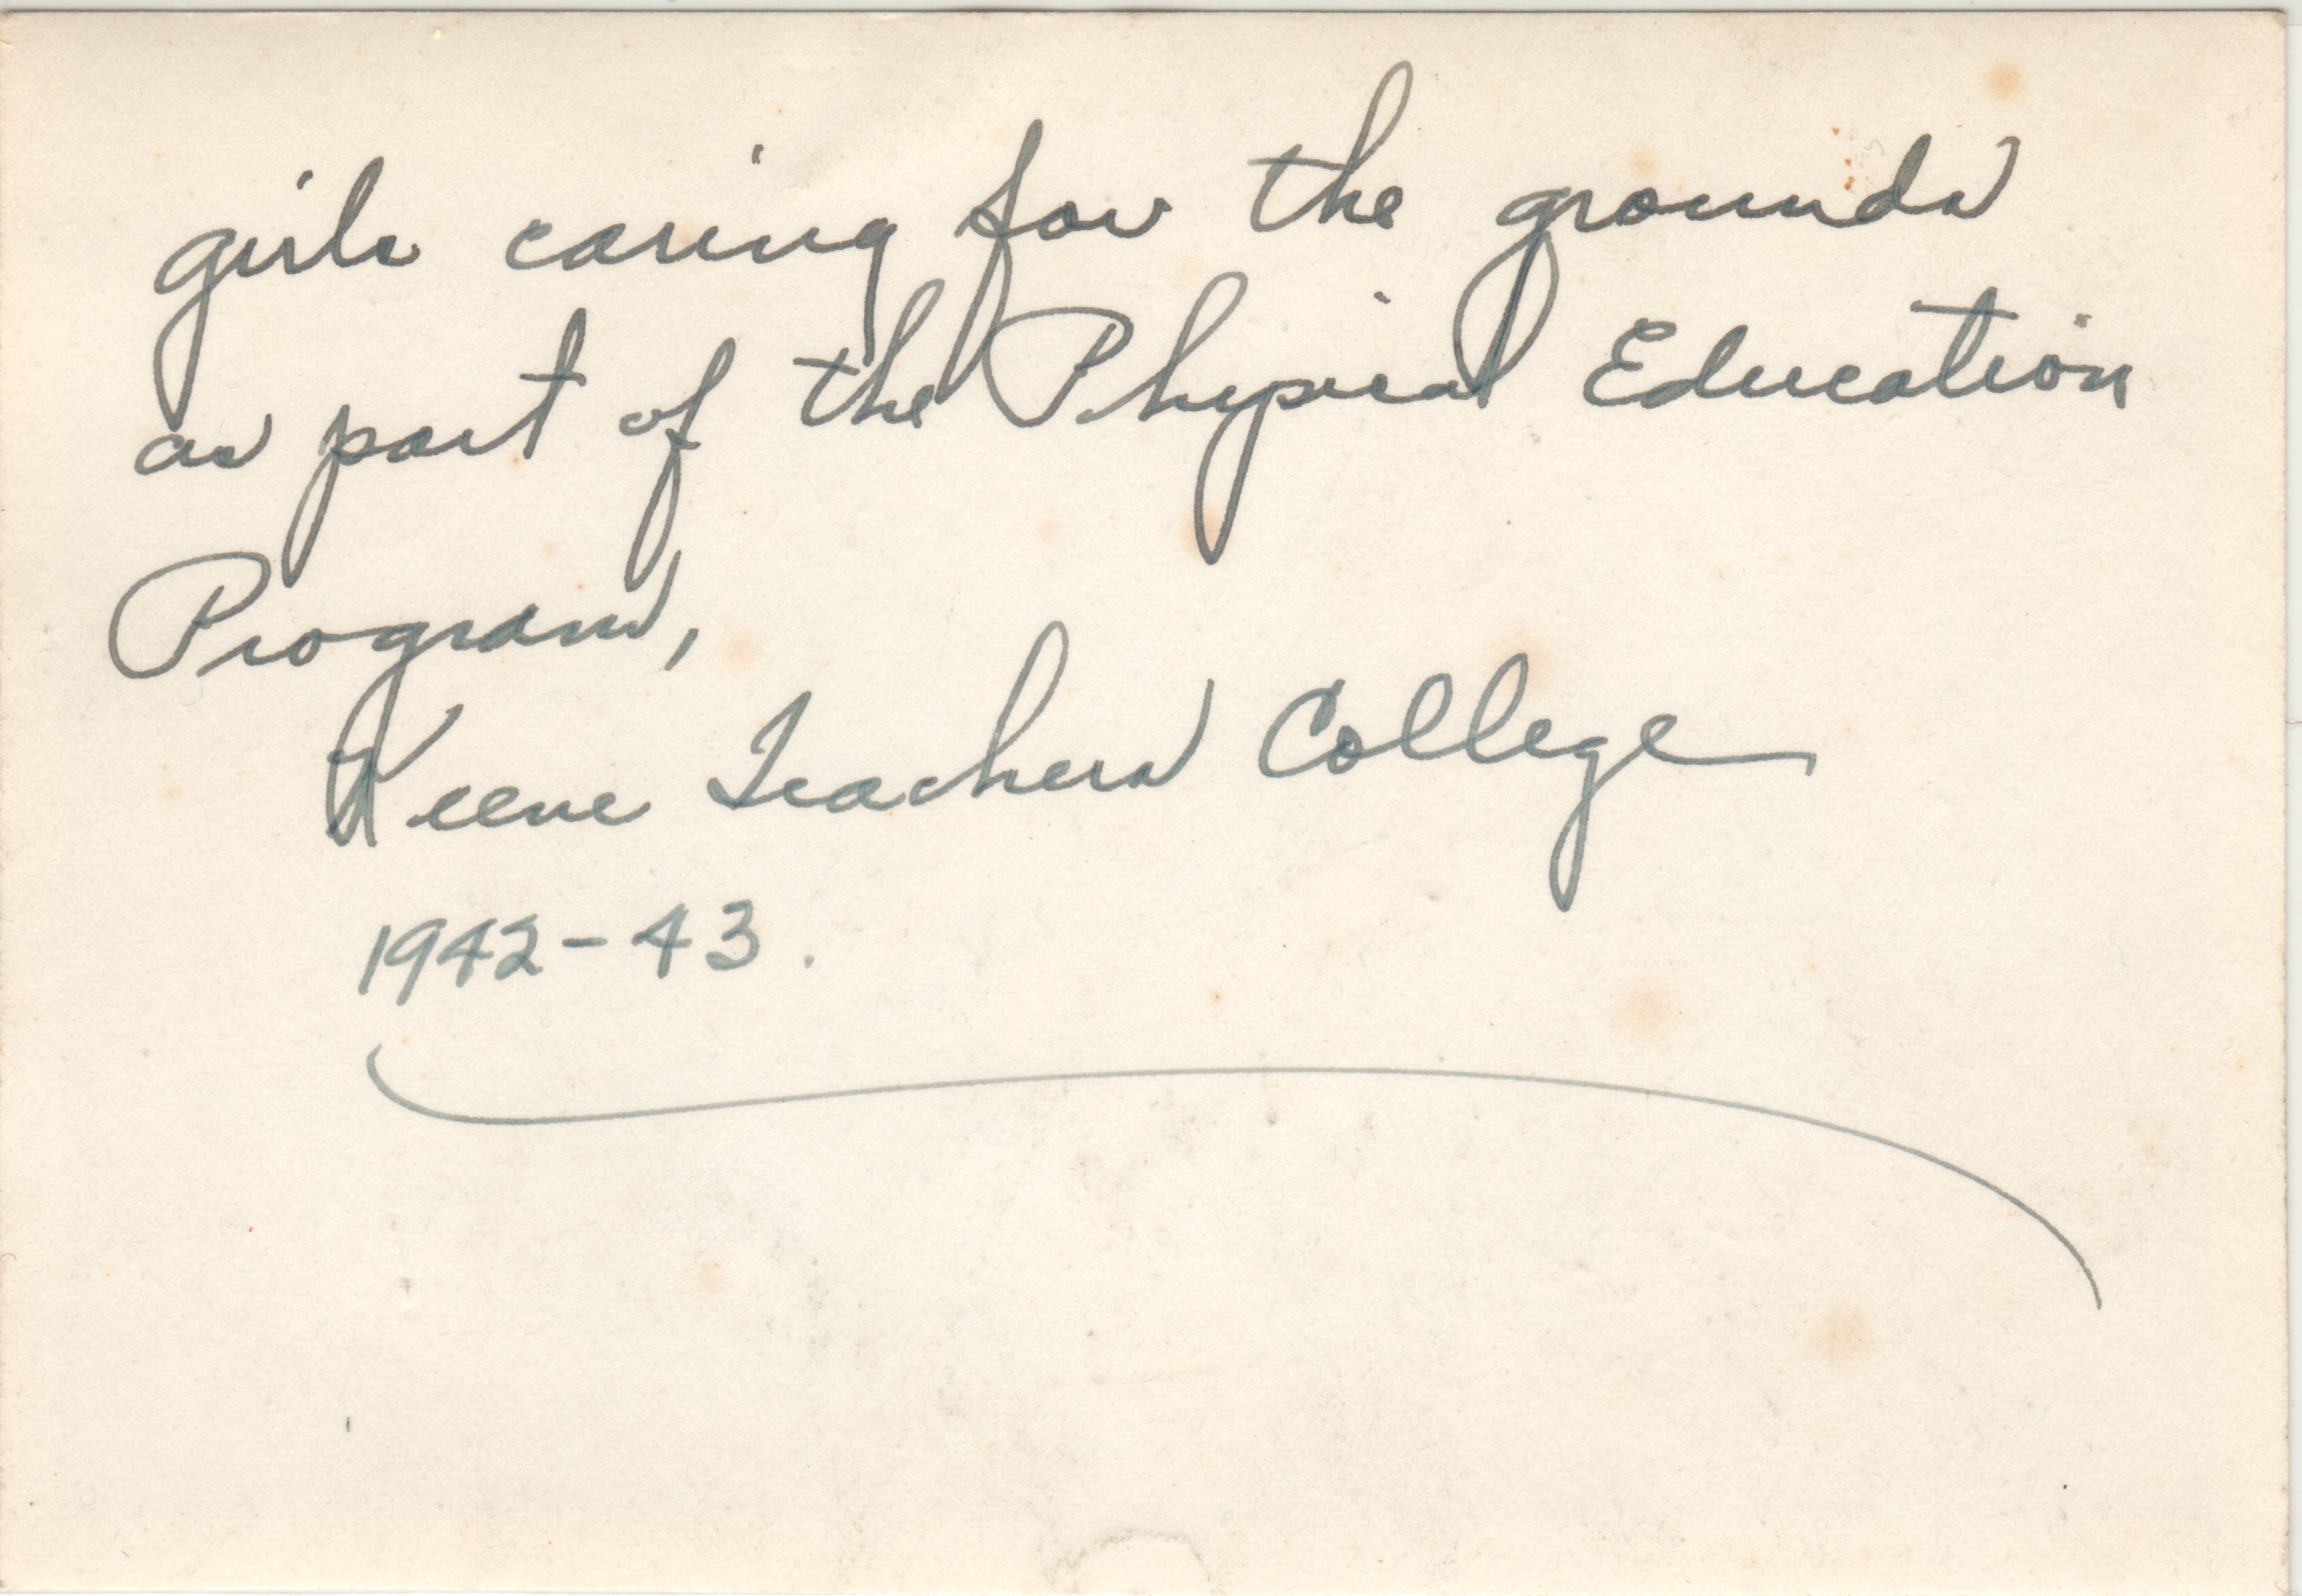 girls caring for the grounds
as part of the Physical Education
Program,
Keene Teachers College
1942-43.